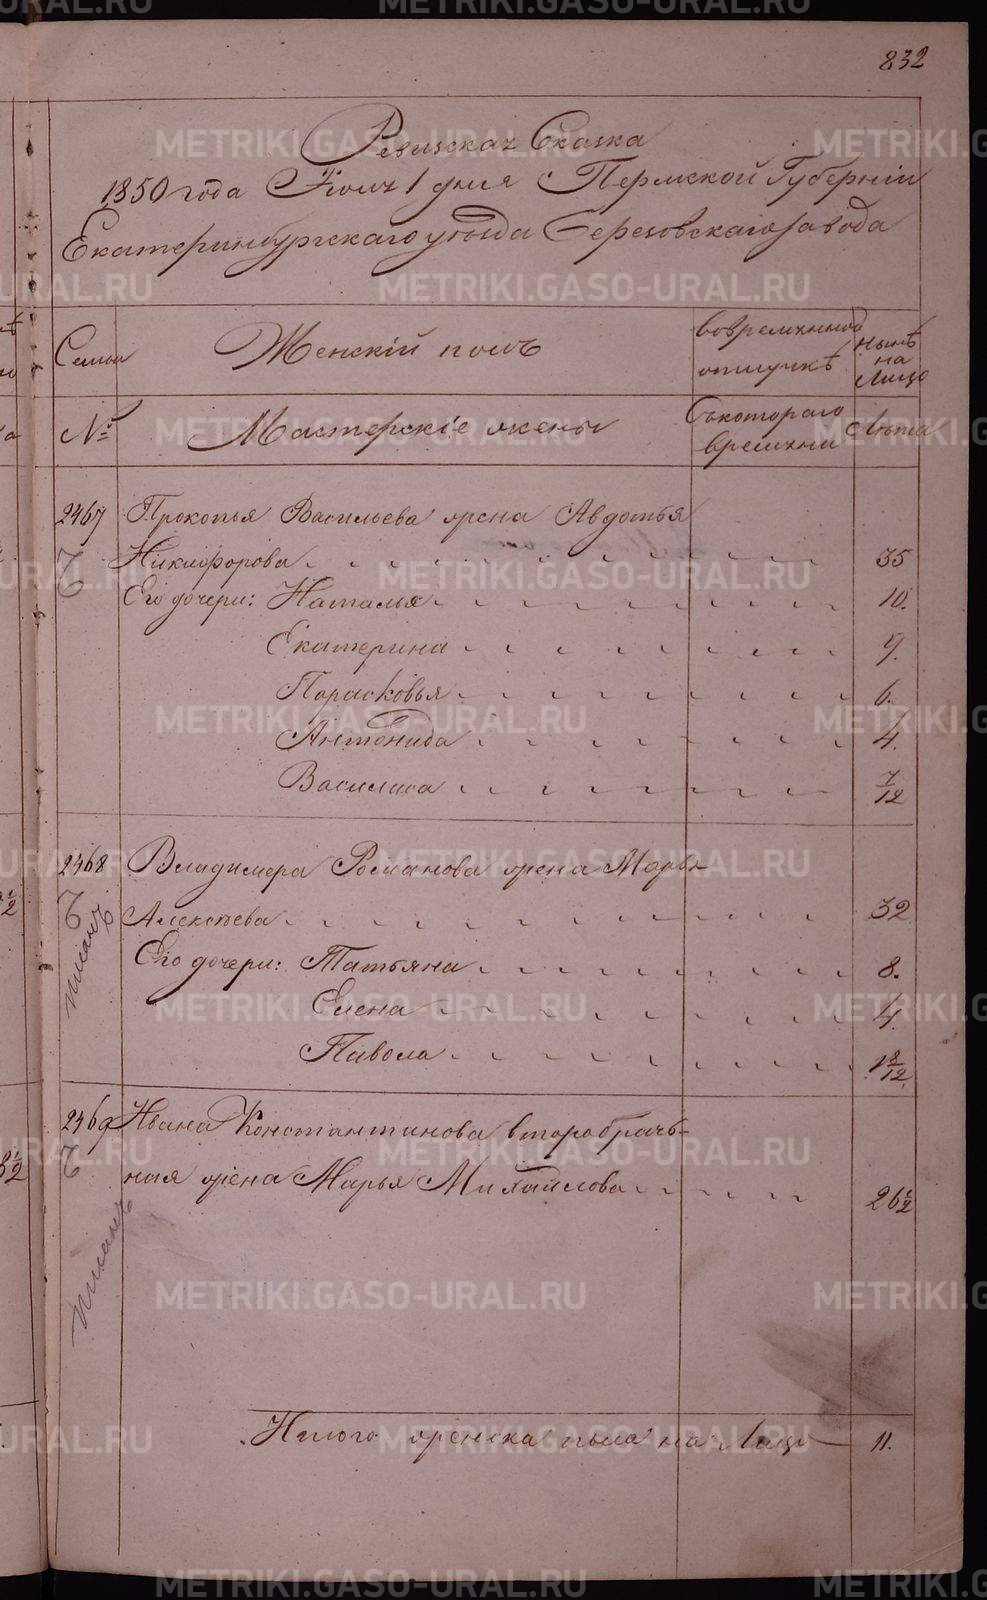 832
Ревизская Сказка
1850 года Июля 1 дня Пермской Губернiи
Екатеринбургскаго уѣзда Березовскаго завода
Семьи
Женскiй полъ
вовременной отлучкѣ
нынѣ на лицо
№
Мастерскiе жены
Съкотораго времени
Лѣта
2467 Прокопья Васильева жена Авдотья
Никифорова 35
Его дочери: Наталья 10.
Екатерина 9.
Порасковья 6.
Антонида 4.
Василиса 7/12
2468 Владимера Романова жена Марья
Алексѣева 32
Его дочери: Татьяна 8.
Елена 4.
Павола 1 8/12
2469 Ивана Константинова второбрачь-
ная жена Марья Михайлова 26 1/2
67
67
67
писанъ
писанъ
Итого женска пола на лицо 11.
METRIKI.GASO-URAL.RU